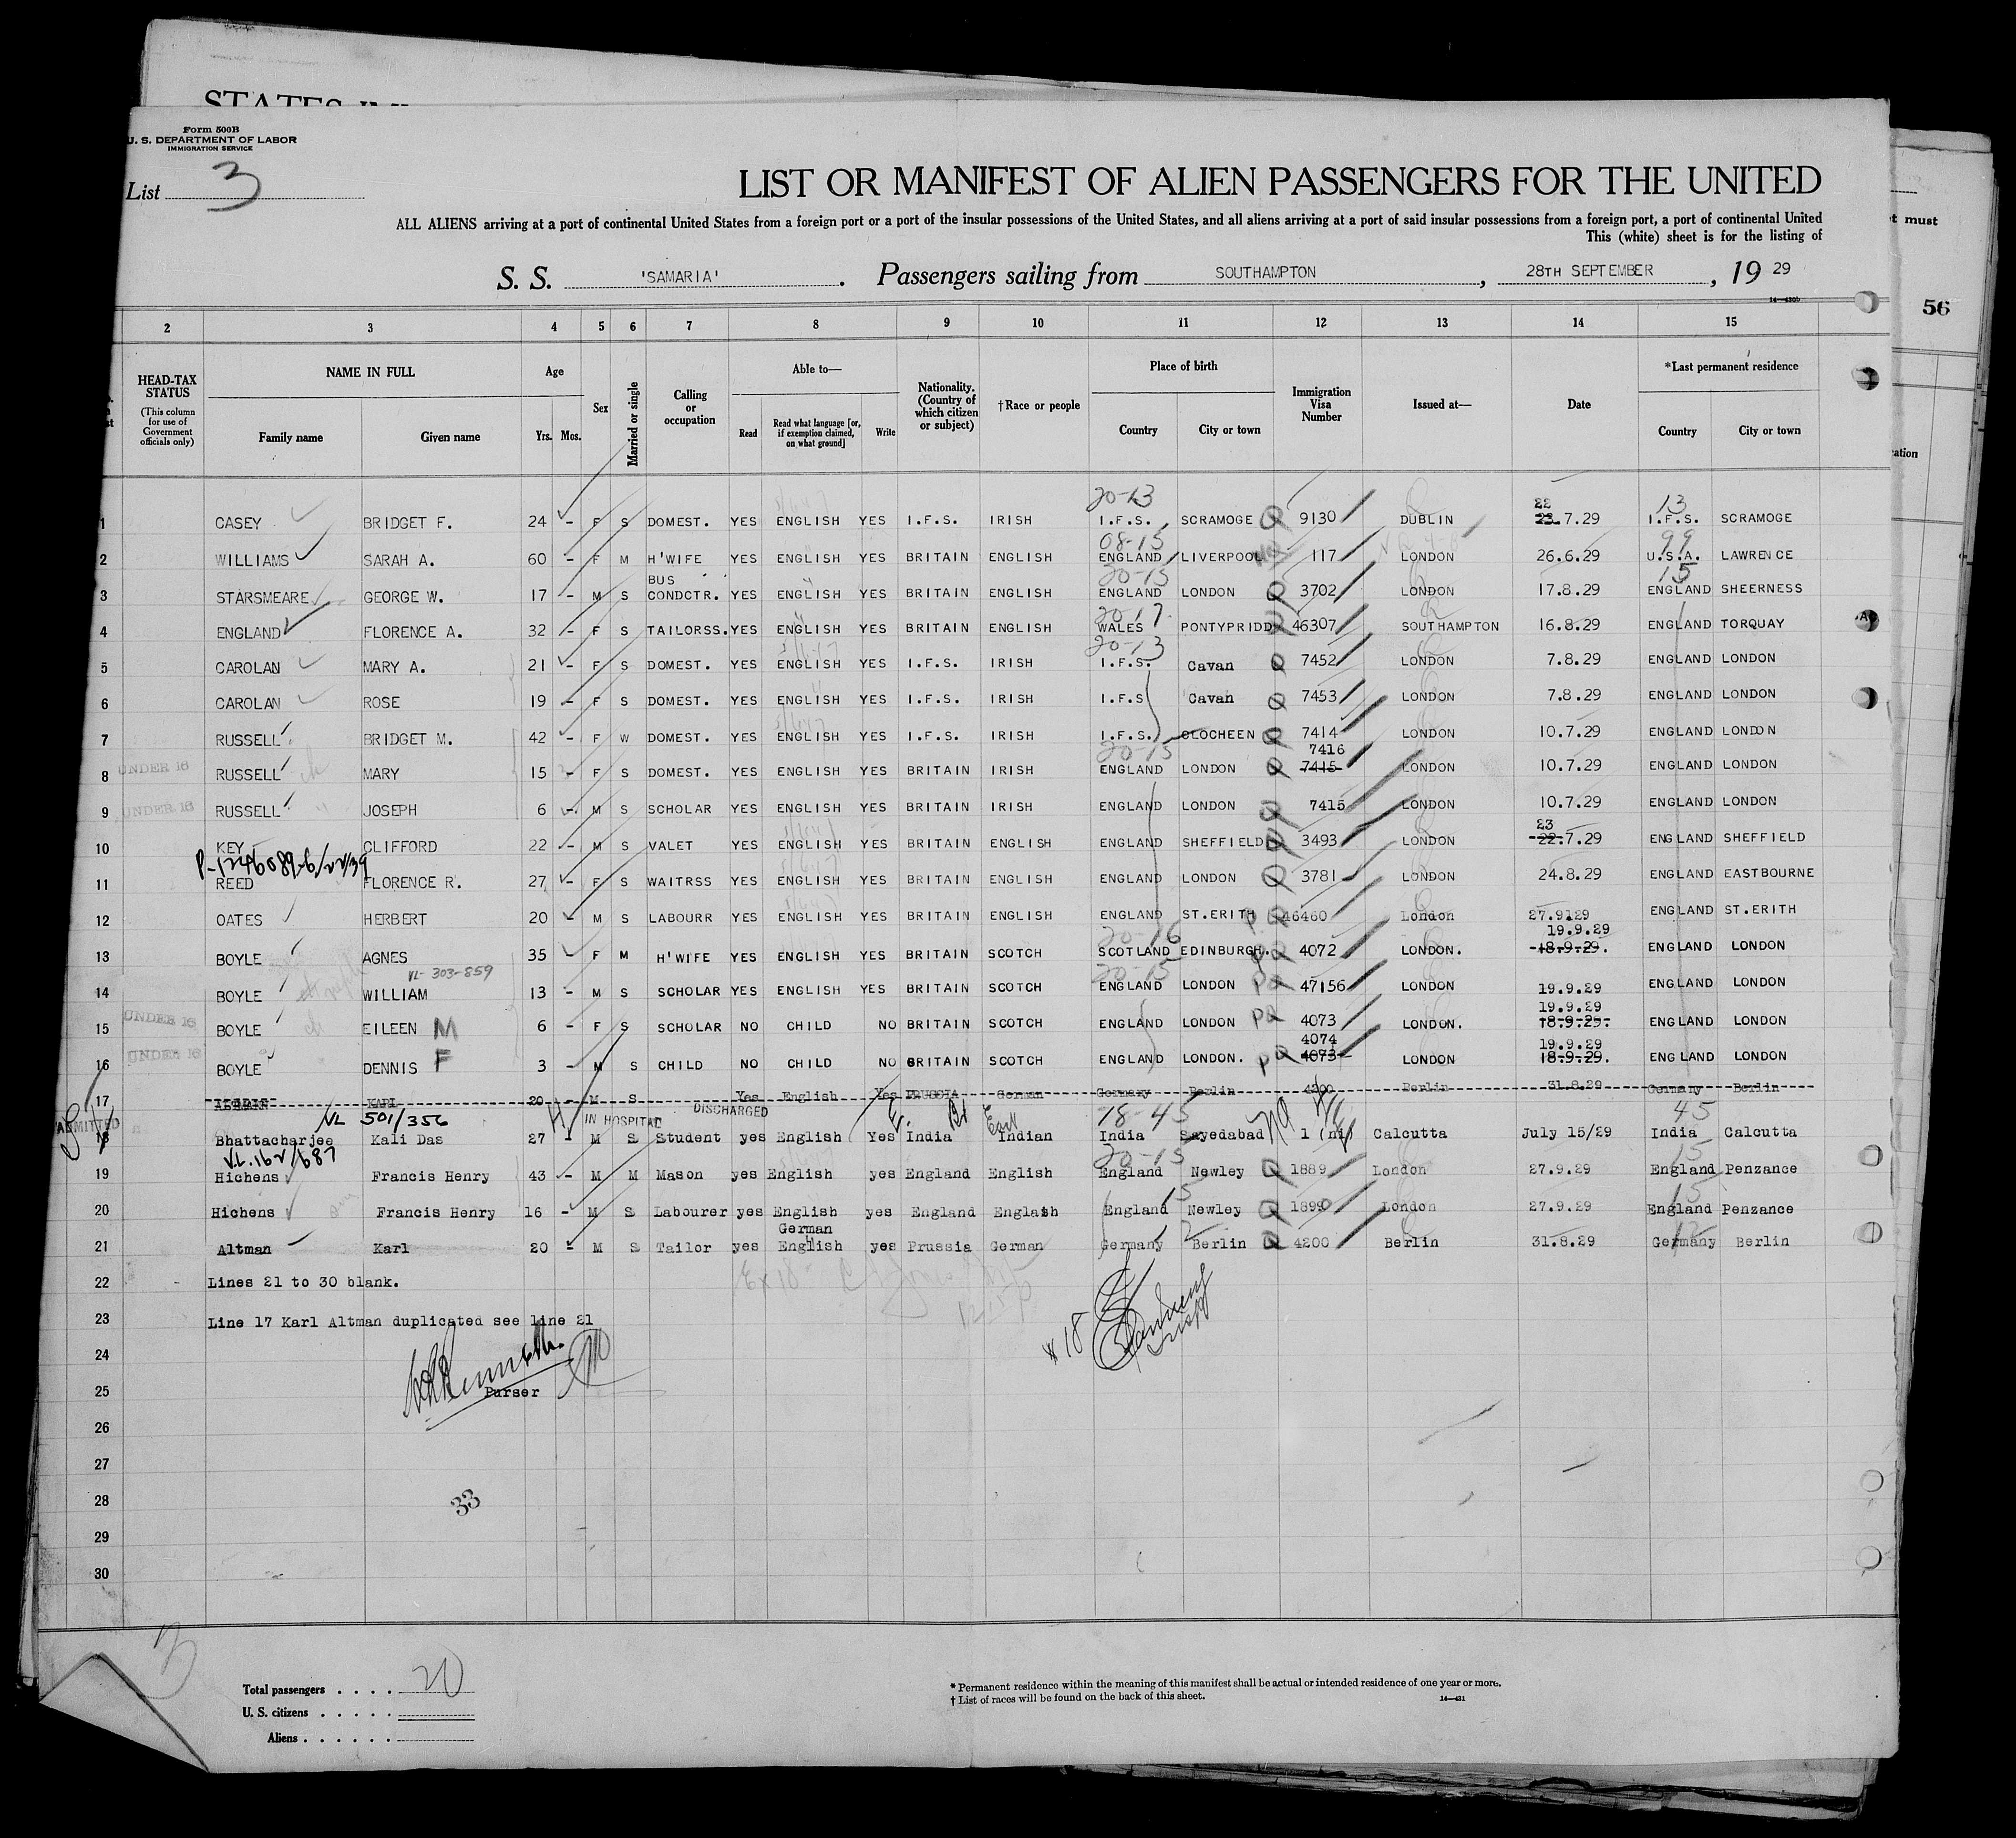 Form 500B
U. S. DEPARTMENT OF LABOR
IMMIGRATION SERVICE
List 3
LIST OR MANIFEST OF ALIEN PASSENGERS FOR THE UNITED
ALL ALIENS arriving at a port of continental United States from a foreign port or a port of the insular possessions of the United States, and all aliens arriving at a port of said insular possessions from a foreign port, a port of continental United
This (white) sheet is for the listing of
S. S. 'SAMARIA'. Passengers sailing from SOUTHAMPTON, 28TH SEPTEMBER, 19 29
56
2 3 4 5 6 7 8 9 10 11 12 13 14 15
HEAD-TAX STATUS (This column for use of Government officials only)
NAME IN FULL Family name Given name
Age Yrs. Mos.
Sex
Married or single
Calling or occupation
Able to— Read Read what language [or, if exemption claimed, on what ground] Write
Nationality. (Country of which citizen or subject)
†Race or people
Place of birth Country City or town
Immigration Visa Number
Issued at—
Date
*Last permanent residence Country City or town
20-13 22 13
1 CASEY BRIDGET F. 24 - F S DOMEST. YES ENGLISH YES I.F.S. IRISH I.F.S. SCRAMOGE 9130 DUBLIN 23.7.29 I.F.S. SCRAMOGE
08-15 99
2 WILLIAMS SARAH A. 60 - F M H'WIFE YES ENGLISH YES BRITAIN ENGLISH ENGLAND LIVERPOOL 117 LONDON 26.6.29 U.S.A. LAWRENCE
20-15 15
3 STARSMEARE GEORGE W. 17 - M S BUS CONDCTR. YES ENGLISH YES BRITAIN ENGLISH ENGLAND LONDON 3702 LONDON 17.8.29 ENGLAND SHEERNESS
20-17
4 ENGLAND FLORENCE A. 32 - F S TAILORSS. YES ENGLISH YES BRITAIN ENGLISH WALES PONTYPRIDD 46307 SOUTHAMPTON 16.8.29 ENGLAND TORQUAY
20-13
5 CAROLAN MARY A. 21 - F S DOMEST. YES ENGLISH YES I.F.S. IRISH I.F.S. Cavan 7452 LONDON 7.8.29 ENGLAND LONDON
6 CAROLAN ROSE 19 - F S DOMEST. YES ENGLISH YES I.F.S. IRISH I.F.S Cavan 7453 LONDON 7.8.29 ENGLAND LONDON
7 RUSSELL BRIDGET M. 42 - F W DOMEST. YES ENGLISH YES I.F.S. IRISH I.F.S. CLOCHEEN 7414 LONDON 10.7.29 ENGLAND LONDON
20-15 7416
UNDER 16
8 RUSSELL MARY 15 - F S DOMEST. YES ENGLISH YES BRITAIN IRISH ENGLAND LONDON 7415 LONDON 10.7.29 ENGLAND LONDON
UNDER 16
9 RUSSELL JOSEPH 6 - M S SCHOLAR YES ENGLISH YES BRITAIN IRISH ENGLAND LONDON 7415 LONDON 10.7.29 ENGLAND LONDON
23
10 KEY CLIFFORD 22 - M S VALET YES ENGLISH YES BRITAIN ENGLISH ENGLAND SHEFFIELD 3493 LONDON 22.7.29 ENGLAND SHEFFIELD
11 REED FLORENCE R. 27 - F S WAITRSS YES ENGLISH YES BRITAIN ENGLISH ENGLAND LONDON 3781 LONDON 24.8.29 ENGLAND EASTBOURNE
12 OATES HERBERT 20 - M S LABOURR YES ENGLISH YES BRITAIN ENGLISH ENGLAND ST.ERITH 46460 London 27.9129 ENGLAND ST.ERITH
20-16 19.9.29
13 BOYLE AGNES 35 F M H'WIFE YES ENGLISH YES BRITAIN SCOTCH SCOTLAND EDINBURGH. 4072 LONDON. 18.9.29. ENGLAND LONDON
VL-303-859 20-15
14 BOYLE WILLIAM 13 - M S SCHOLAR YES ENGLISH YES BRITAIN SCOTCH ENGLAND LONDON 47156 LONDON 19.9.29 ENGLAND LONDON
19.9.29
UNDER 16
15 BOYLE EILEEN M 6 - F S SCHOLAR NO CHILD NO BRITAIN SCOTCH ENGLAND LONDON 4073 LONDON. 18.9.29. ENGLAND LONDON
4074 19.9.29
UNDER 16
16 BOYLE DENNIS F 3 - M S CHILD NO CHILD NO BRITAIN SCOTCH ENGLAND LONDON. 4073 LONDON 18.9.29. ENGLAND LONDON
17 KARL 20 - M S Yes English Yes PRUSSIA German Germany Berlin 4200 Berlin 31.8.29 Germany Berlin
VL 501/356 IN HOSPITAL DISCHARGED East 18-45 45
ADMITTED
18 Bhattacharjee Kali Das 27 - M S Student yes English Yes India Indian India Sayedabad 1 (nq) Calcutta July 15/29 India Calcutta
V.L.162/687 20-15 15
19 Hichens Francis Henry 43 - M M Mason yes English yes England English England Newley 1889 London 27.9.29 England Penzance
15 15
20 Hichens Francis Henry 16 - M S Labourer yes English yes England English England Newley 1890 London 27.9.29 England Penzance
German
21 Altman Karl 20 - M S Tailor yes English yes Prussia German Germany Berlin 4200 Berlin 31.8.29 Germany Berlin
22 Lines 21 to 30 blank.
23 Line 17 Karl Altman duplicated see line 21
24
25 Purser
26
27
28
33
29
30
Total passengers . . . . 20
U. S. citizens . . . . .
Aliens . . . . . .
* Permanent residence within the meaning of this manifest shall be actual or intended residence of one year or more.
† List of races will be found on the back of this sheet.
14—421